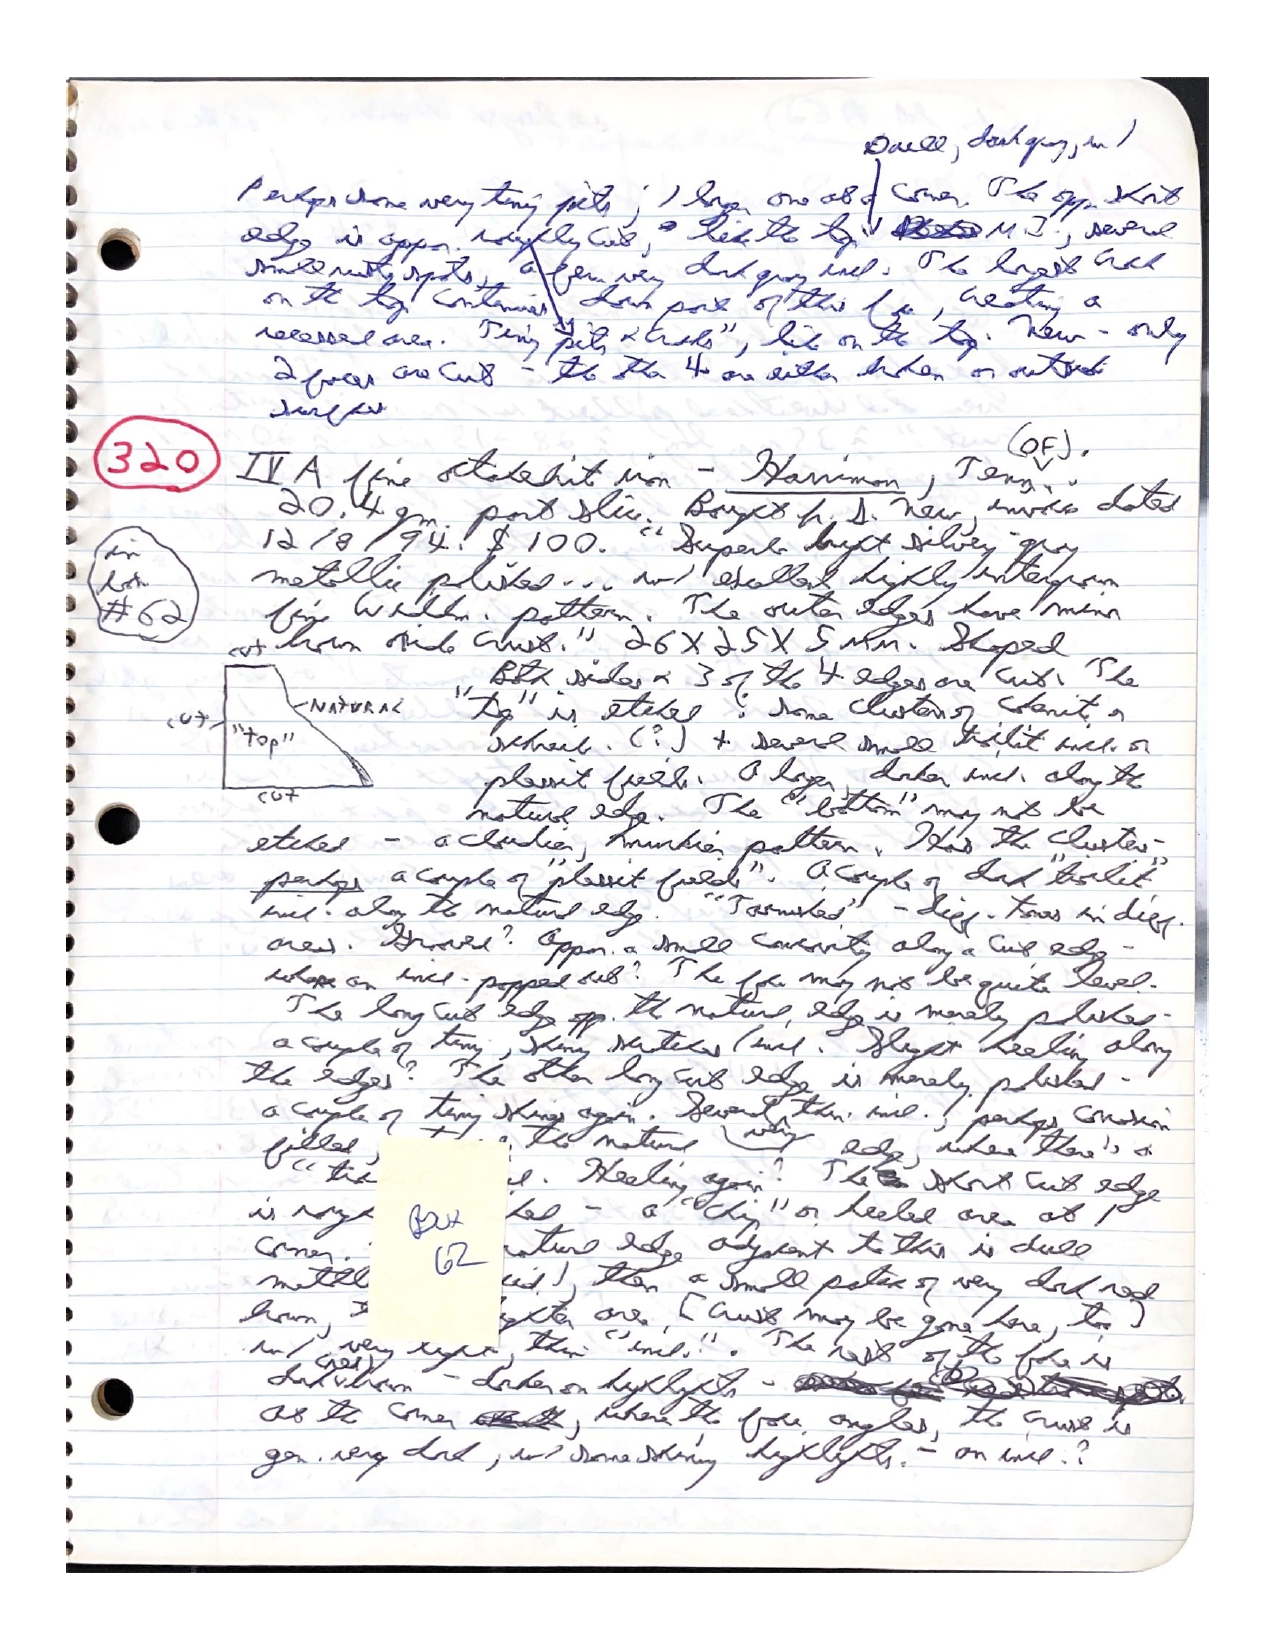 Dull, dark gray, w/
Perhaps some very tiny pits; 1 larger one at a corner. The opp. short
edge is appar. roughly cut, like the top M.I., several
small rusty spots, a few very dark gray incl. The largest crack
on the top continues down part of this face, creating a
recessed area. Tiny pits & "cracks", like on the top. New - only
2 faces are cut - the other 4 are either broken or outside
surfaces
320
IV A fine octahedrite iron - Harriman, Tenn. (OF).
20.4 gm. part slice. Bought fr. D. New, invoice dated
12/8/94. $100. "Superb bright silvery-gray
in box #62
metallic polished... w/ excellent highly intergrown
fine Widm. pattern. The outer edges have minor
brown oxide crust." 26 X 25 X 5 mm. Shaped
cut
cut
"top"
NATURAL
cut
Both sides & 3 of the 4 edges are cut. The
"top" is etched: some clusters of cohenite or
schreib. (?) + several small troilite incl. or
plessite fields. A larger, darker incl. along the
natural edge. The "bottom" may not be
etched - a cloudier, murkier pattern. Has the clusters -
perhaps a couple of "plessite fields". A couple of dark "troilite"
incl. along the natural edge. "Tarnished" - diff. tones in diff.
areas. Grooves? Appar. a small concavity along a cut edge -
where an incl. popped out? The face may not be quite level.
The long cut edge opp. the natural edge is merely polished -
a couple of tiny, shiny scratches/incl. Slight beveling along
the edges? The other long cut edge is merely polished -
a couple of tiny shinys again. Several very thin incl., perhaps corrosion
filled, the natural edge, where there's a
Beveling again? The short cut edge
is - a "chip" or beveled area at 1
corner. natural edge adjacent to this is dull
then a small patch of very dark red
brown, area, [crust may be gone here, too]
w/ very light, thin "incl.". The rest of the face is
dark (red) brown - darker on highlights -
at the corner, where the face angles, the crust is
gen. very dark, w/ some shiny highlights. - an incl.?
Box
62